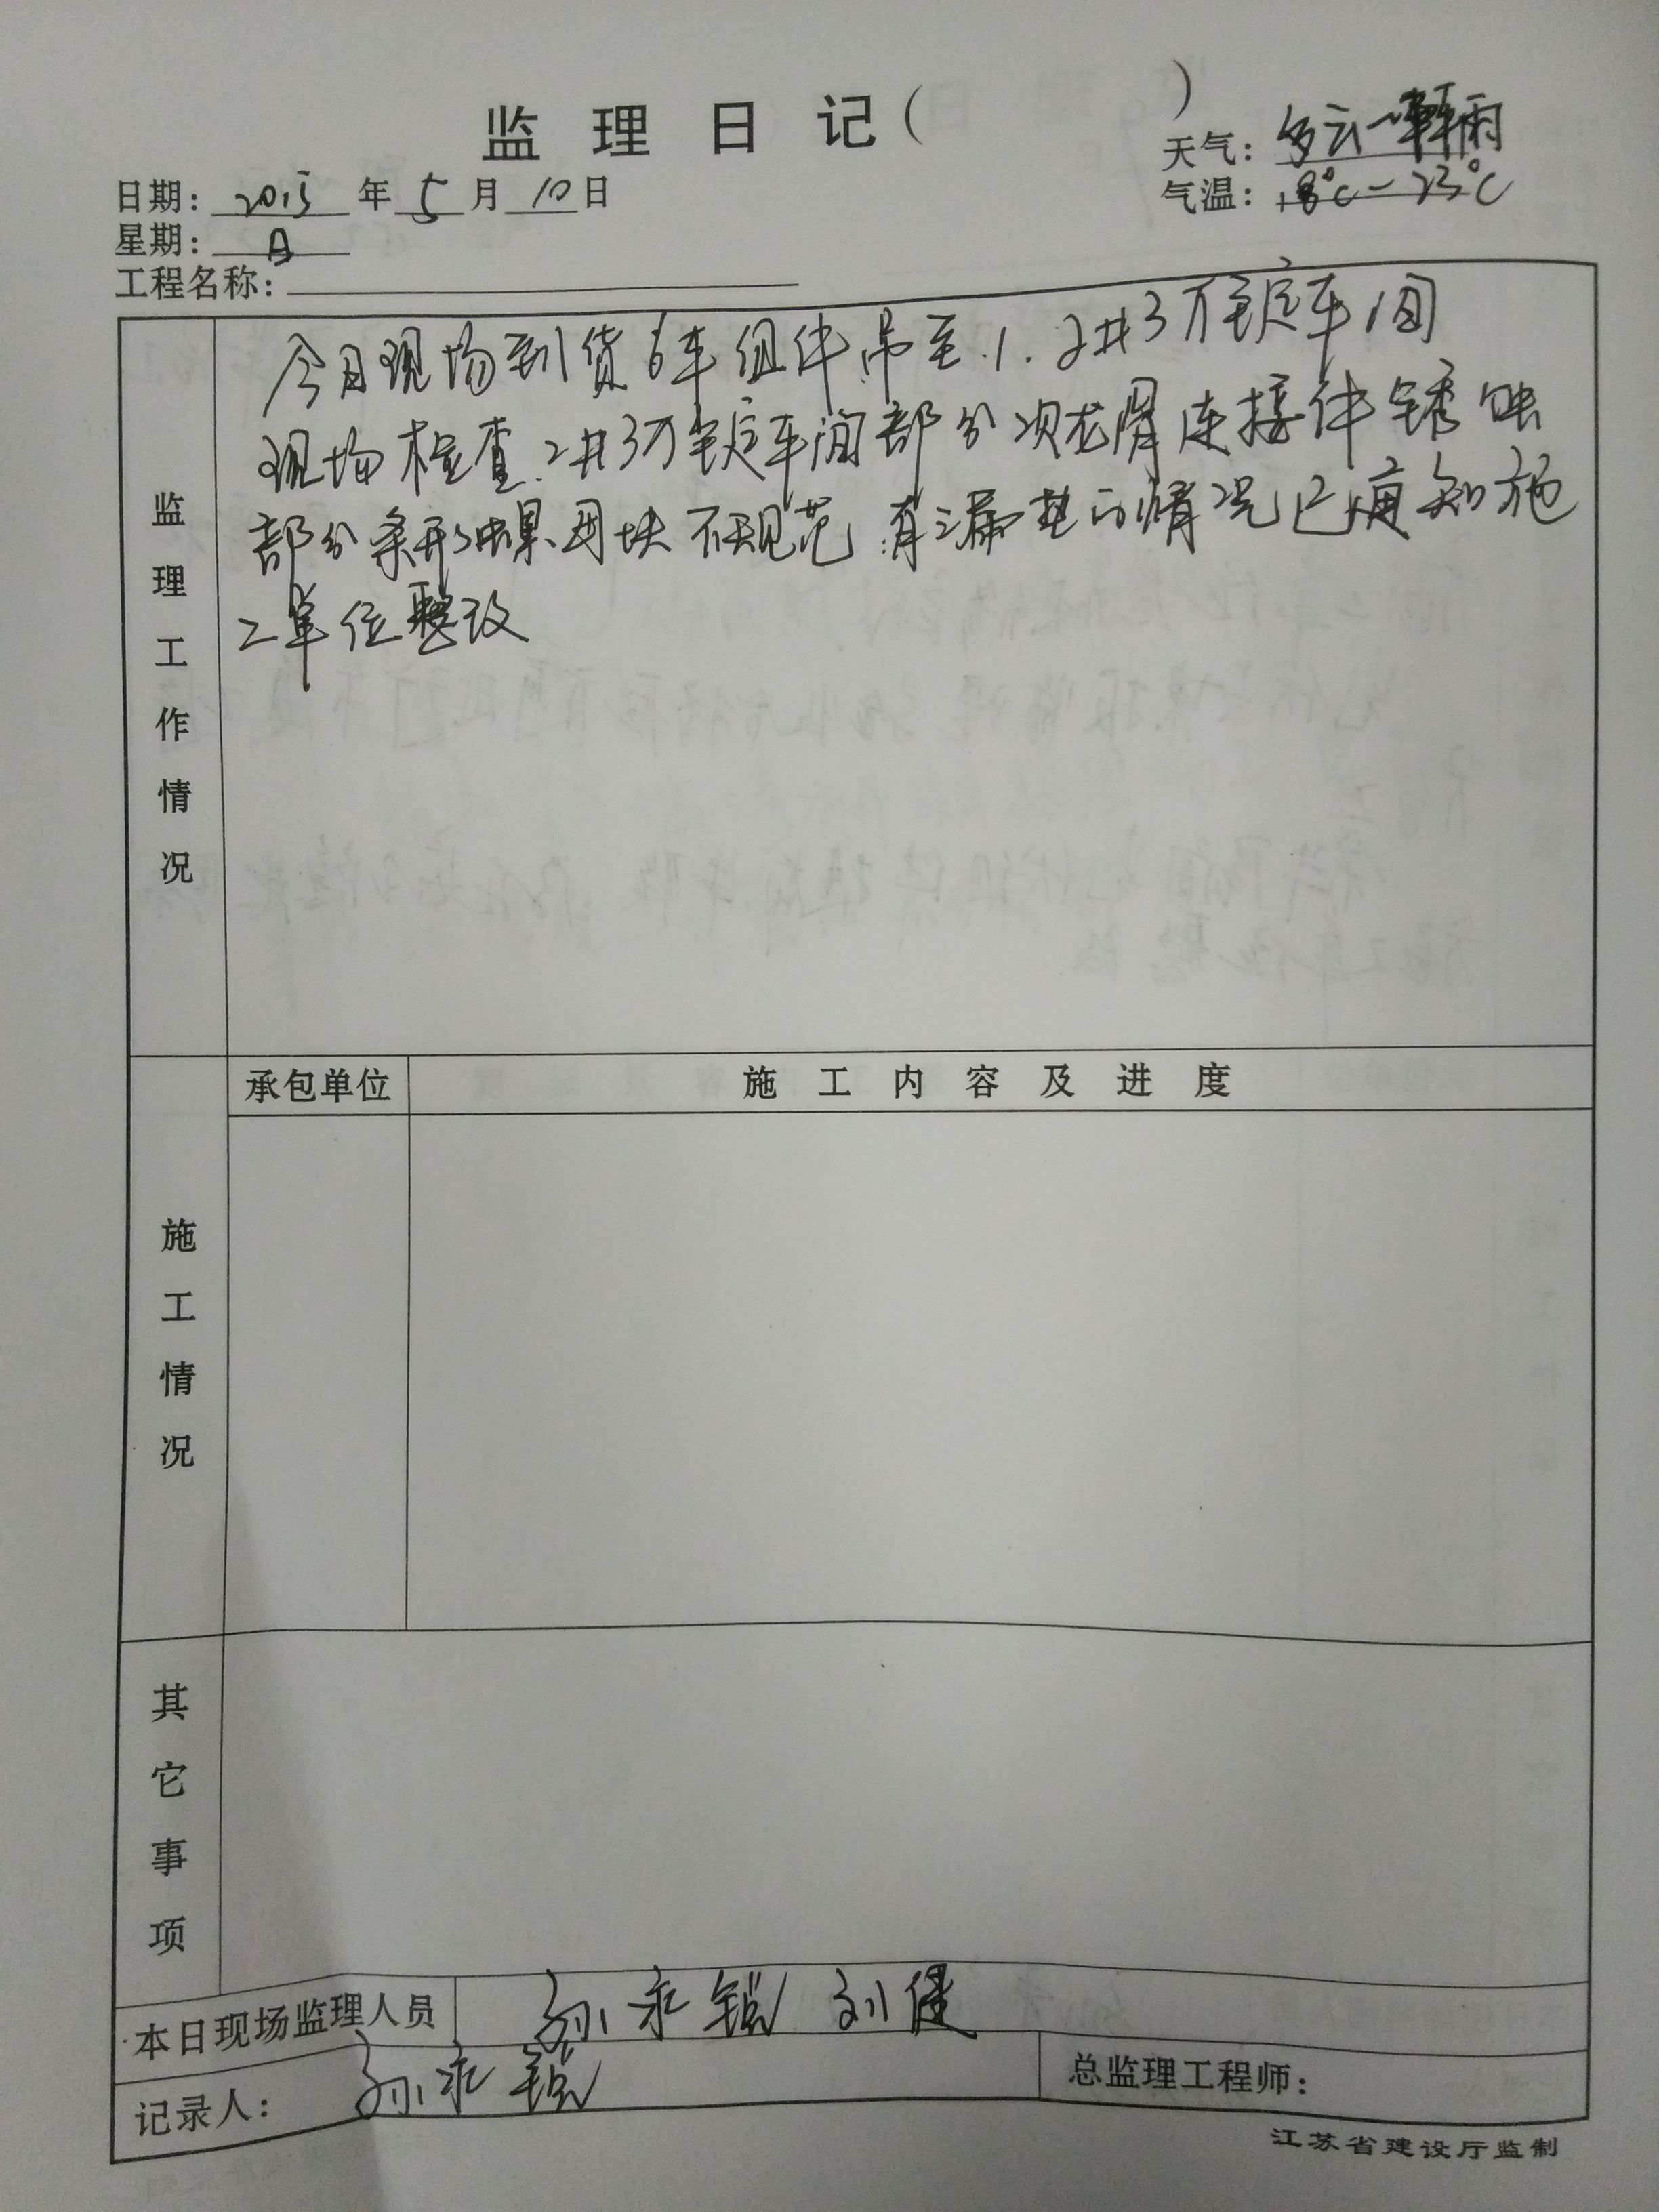 监理日记（　　　）
天气：多云~阵雨
日期：2015年5月10日
气温：18℃－23℃
星期：日
工程名称：
监理工作情况
今日现场到货6车组件吊至1.2#3万锭车间
现场检查.2#3万锭车间部分次龙骨连接件锈蚀
部分条形 块不规范 有漏垫的情况已通知施
工单位整改
承包单位
施工内容及进度
施工情况
其它事项
本日现场监理人员
孙永 刘健
记录人：孙永
总监理工程师：
江苏省建设厅监制